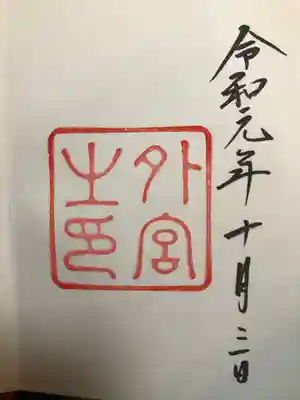 令和元年十月三日
外宮
之印